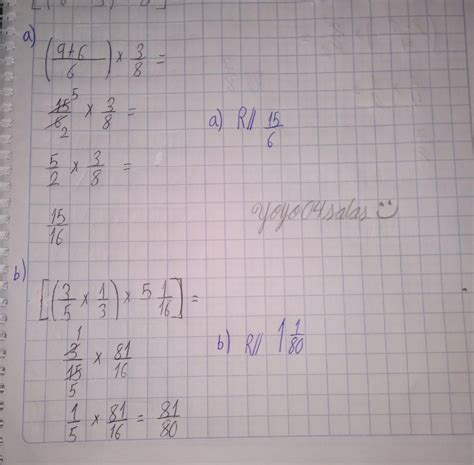 a)
(9+6/6) × 3/8 =
15/6 5/2 × 3/8 =
a) R// 15/6
5/2 × 3/8 =
15/16
yoyo04salas
b)
[(3/5 × 1/3) × 5 1/16] =
3/15 1/5 × 81/16
b) R// 1 1/80
1/5 × 81/16 = 81/80